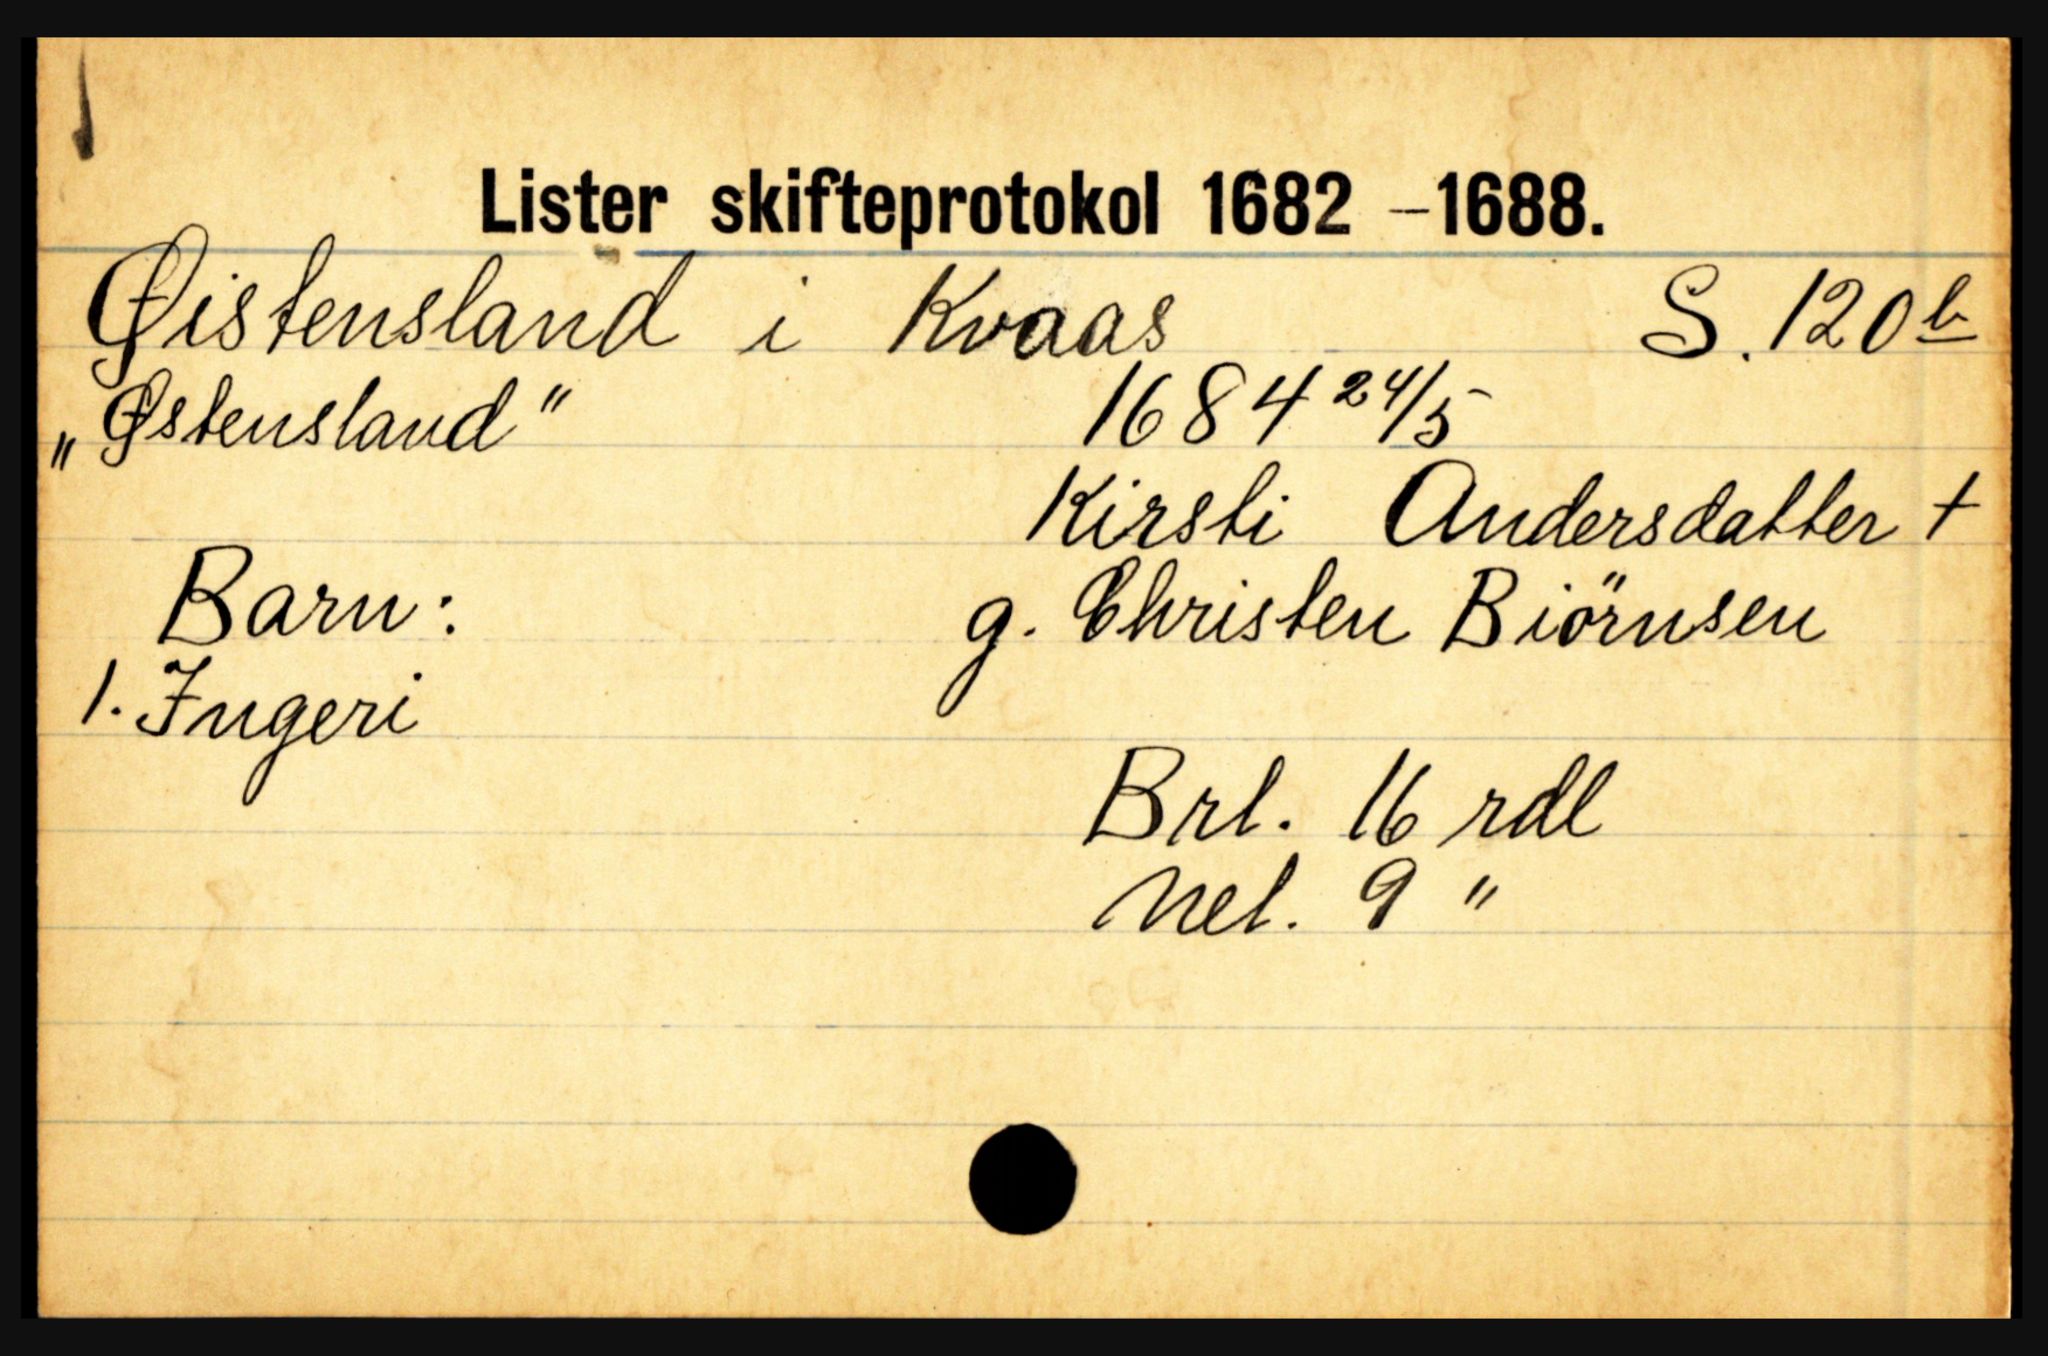 Lister skifteprotokol 1682 – 1688.
Øistensland i Kvaas S. 120 b
„Østensland" 1684 24/5
Kirsti Andersdatter †
Barn: g. Christen Biörnsen
1. Ingeri
Brl. 16 rdl
Nel. 9 "